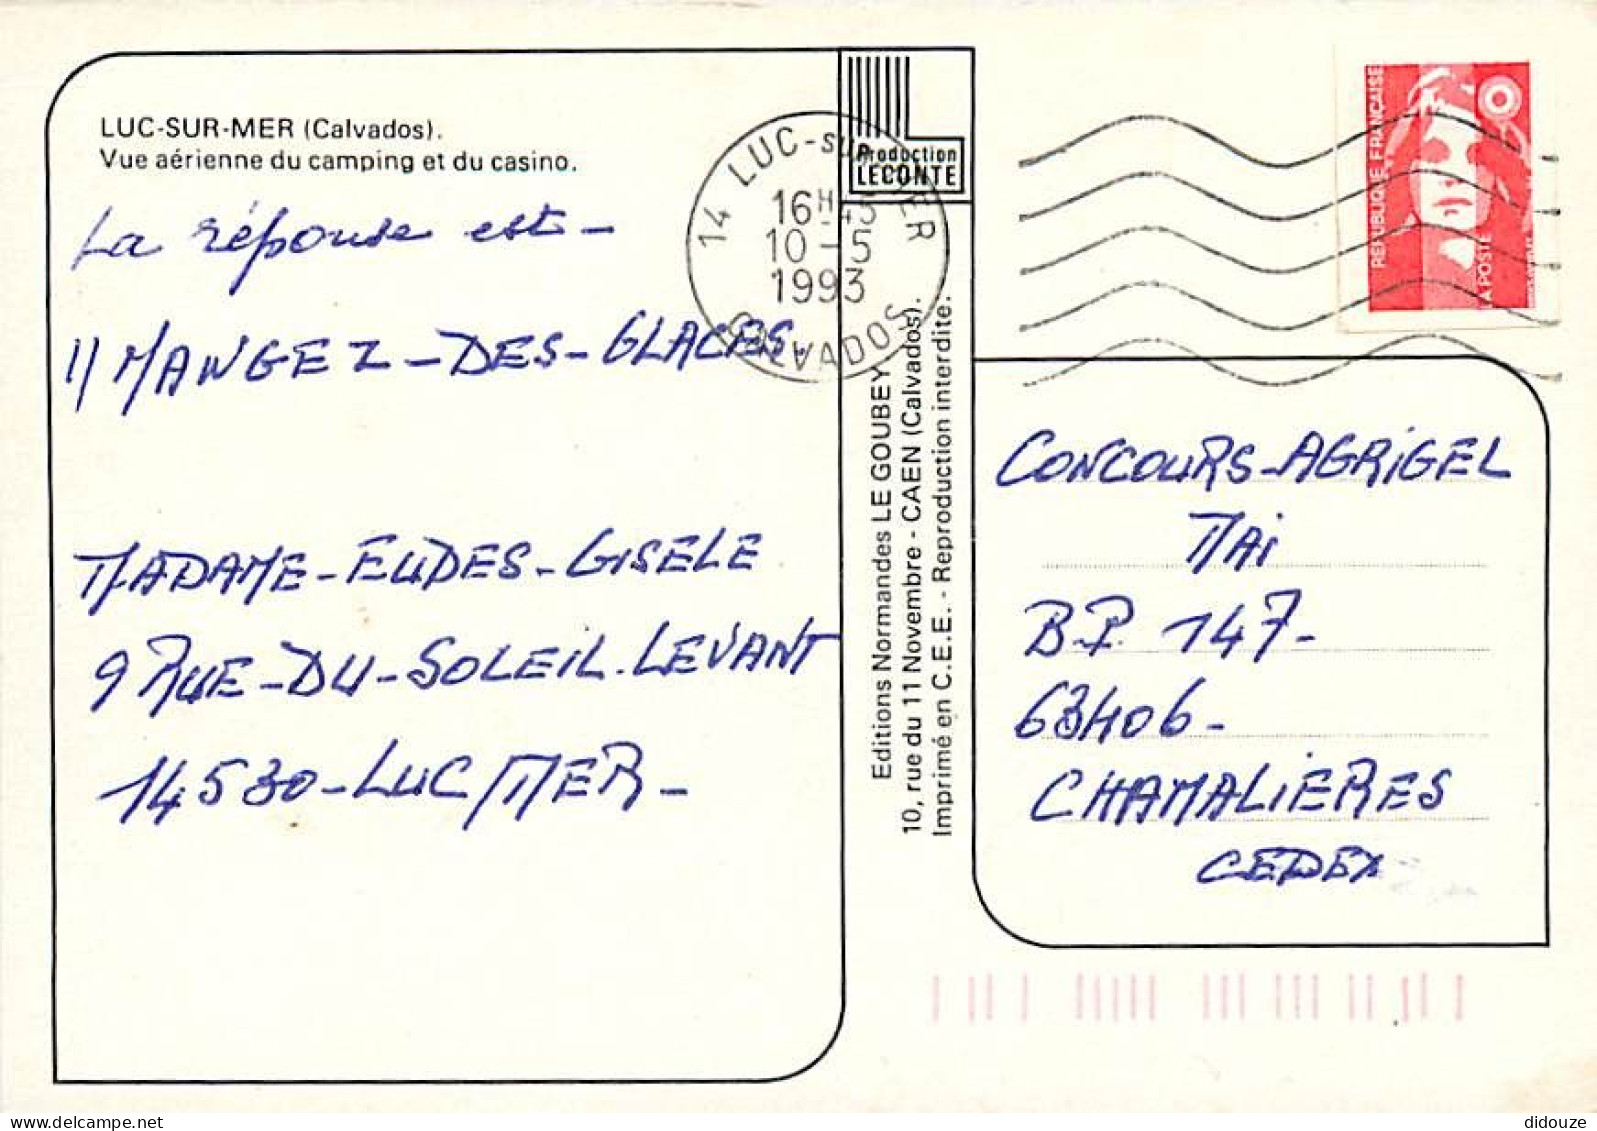 LUC-SUR-MER (Calvados).
Vue aérienne du camping et du casino.
La réponse est -
11 MANGEZ - DES - GLACES.
MADAME - EUDES - GISELE
9 RUE - DU - SOLEIL. LEVANT
14530 - LUC/MER -
Production
LECONTE
14 LUC-sur-MER
16H45
10-5
1993
CALVADOS
Editions Normandes LE GOUBEY
10, rue du 11 Novembre - CAEN (Calvados).
Imprimé en C.E.E. - Reproduction interdite.
REPUBLIQUE FRANÇAISE
LA POSTE
CONCOURS - AGRIGEL
MAi
B.P. 147 -
63406 -
CHAMALIERES
CEDEX
didouze